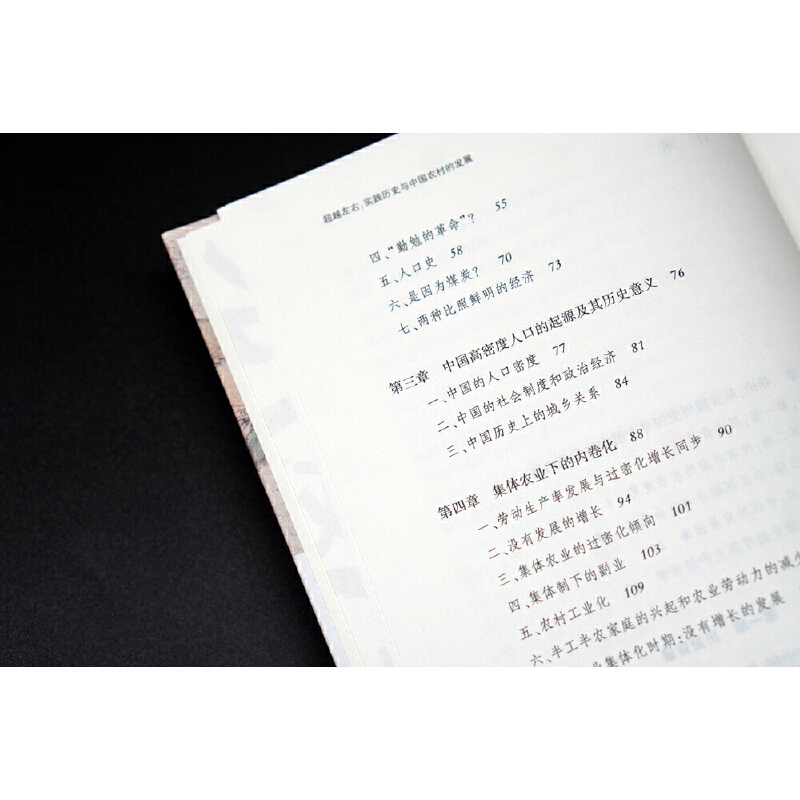 超越左右:实践历史与中国农村的发展
四、“勤勉的革命”? 55
五、人口史 58
六、是因为煤炭? 70
七、两种比照鲜明的经济 73
第三章 中国高密度人口的起源及其历史意义 76
一、中国的人口密度 77
二、中国的社会制度和政治经济 81
三、中国历史上的城乡关系 84
第四章 集体农业下的内卷化 88
一、劳动生产率发展与过密化增长同步 90
二、没有发展的增长 94
三、集体农业的过密化倾向 101
四、集体制下的副业 103
五、农村工业化 109
六、半工半农家庭的兴起和农业劳动力的减少
业集体化时期:没有增长的发展